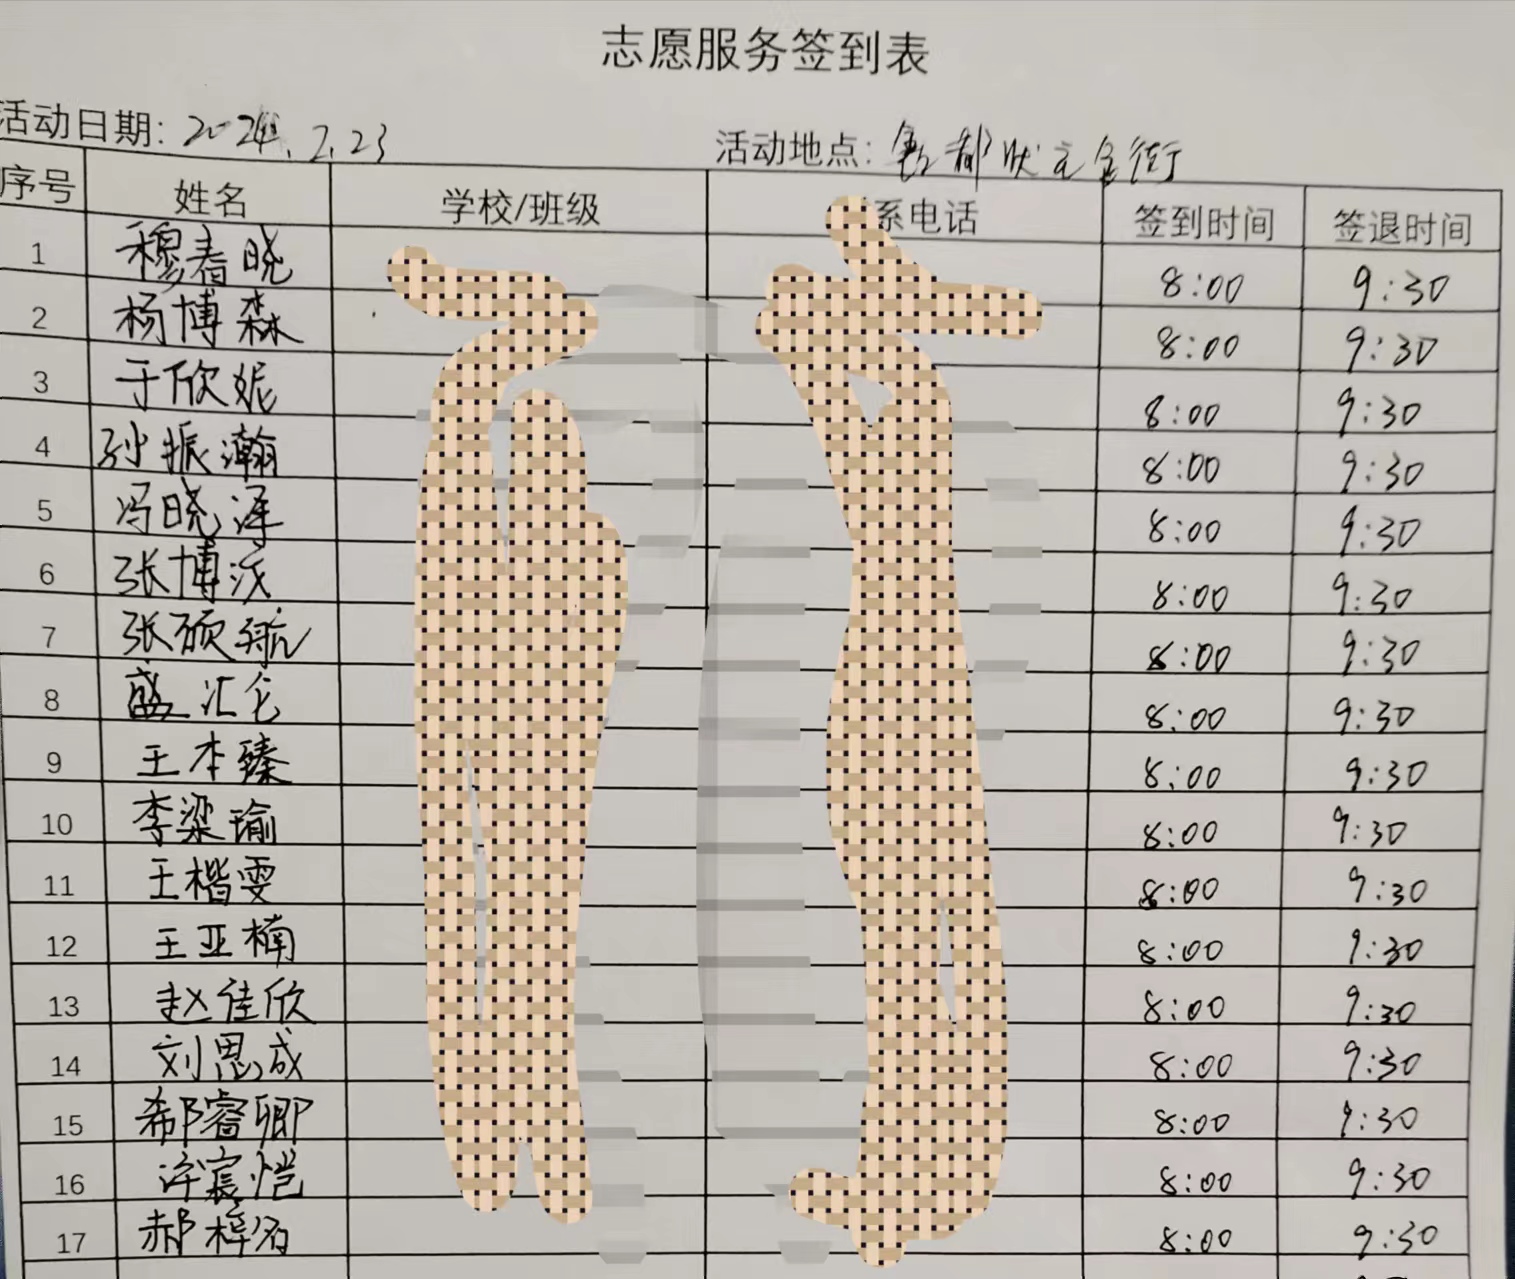 志愿服务签到表
活动日期: 2024.2.23 活动地点: 都状元金街
序号 姓名 学校/班级 系电话 签到时间 签退时间
1 穆春晓 8:00 9:30
2 杨博森 8:00 9:30
3 于欣妮 8:00 9:30
4 孙振瀚 8:00 9:30
5 冯晓泽 8:00 9:30
6 张博沃 8:00 9:30
7 张硕航 8:00 9:30
8 盛汇仑 8:00 9:30
9 王本臻 8:00 9:30
10 李梁瑜 8:00 9:30
11 王楷雯 8:00 9:30
12 王亚楠 8:00 9:30
13 赵佳欣 8:00 9:30
14 刘思成 8:00 9:30
15 郗睿卿 8:00 9:30
16 许宸恺 8:00 9:30
17 郝梓名 8:00 9:30